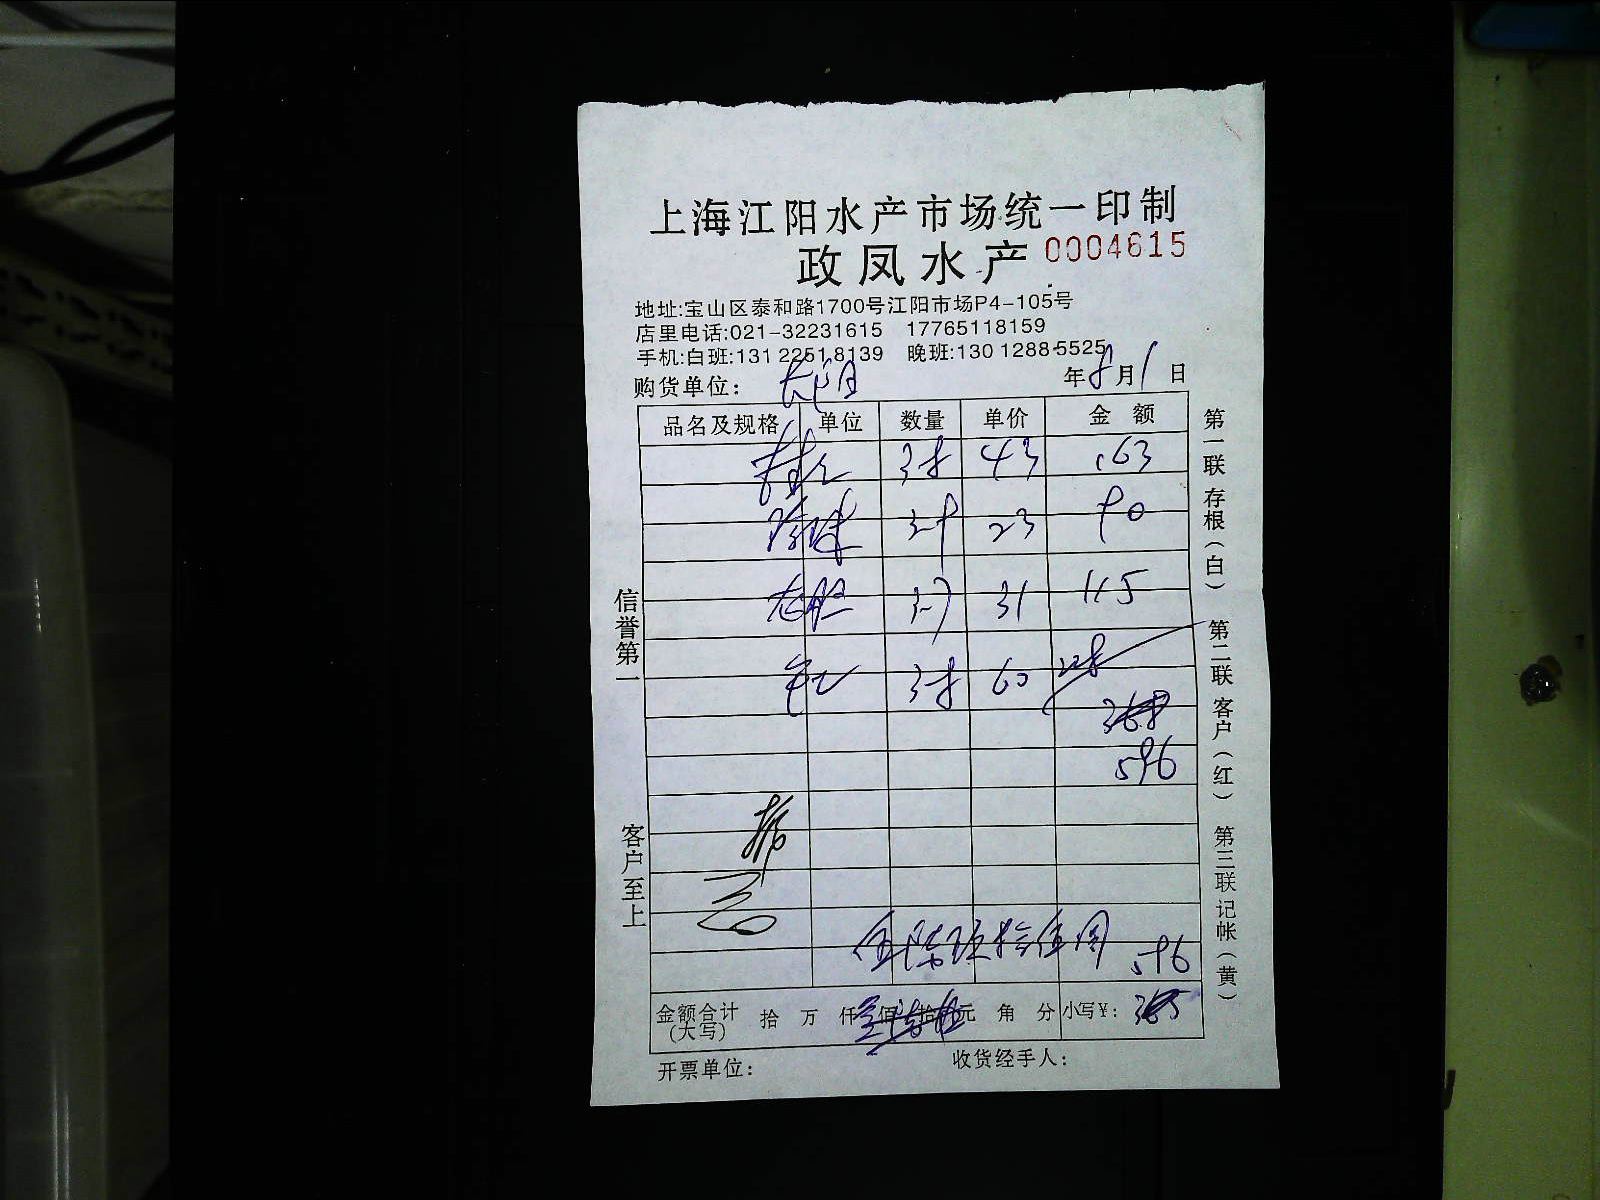 上海江阳水产市场统一印制
政凤水产 0004615
地址:宝山区泰和路1700号江阳市场P4-105号
店里电话:021-32231615 17765118159
手机:白班:131 2251 8139 晚班:130 1288 5525
购货单位: 年8月1日
品名及规格 单位 数量 单价 金额
38 43 163
39 23 90
37 31 115
38 60 228
368
596
596
金额合计(大写) 拾 万 仟 佰 拾 元 角 分 小写¥: 365
开票单位: 收货经手人:
信誉第一
客户至上
第一联存根(白) 第二联客户(红) 第三联记帐(黄)